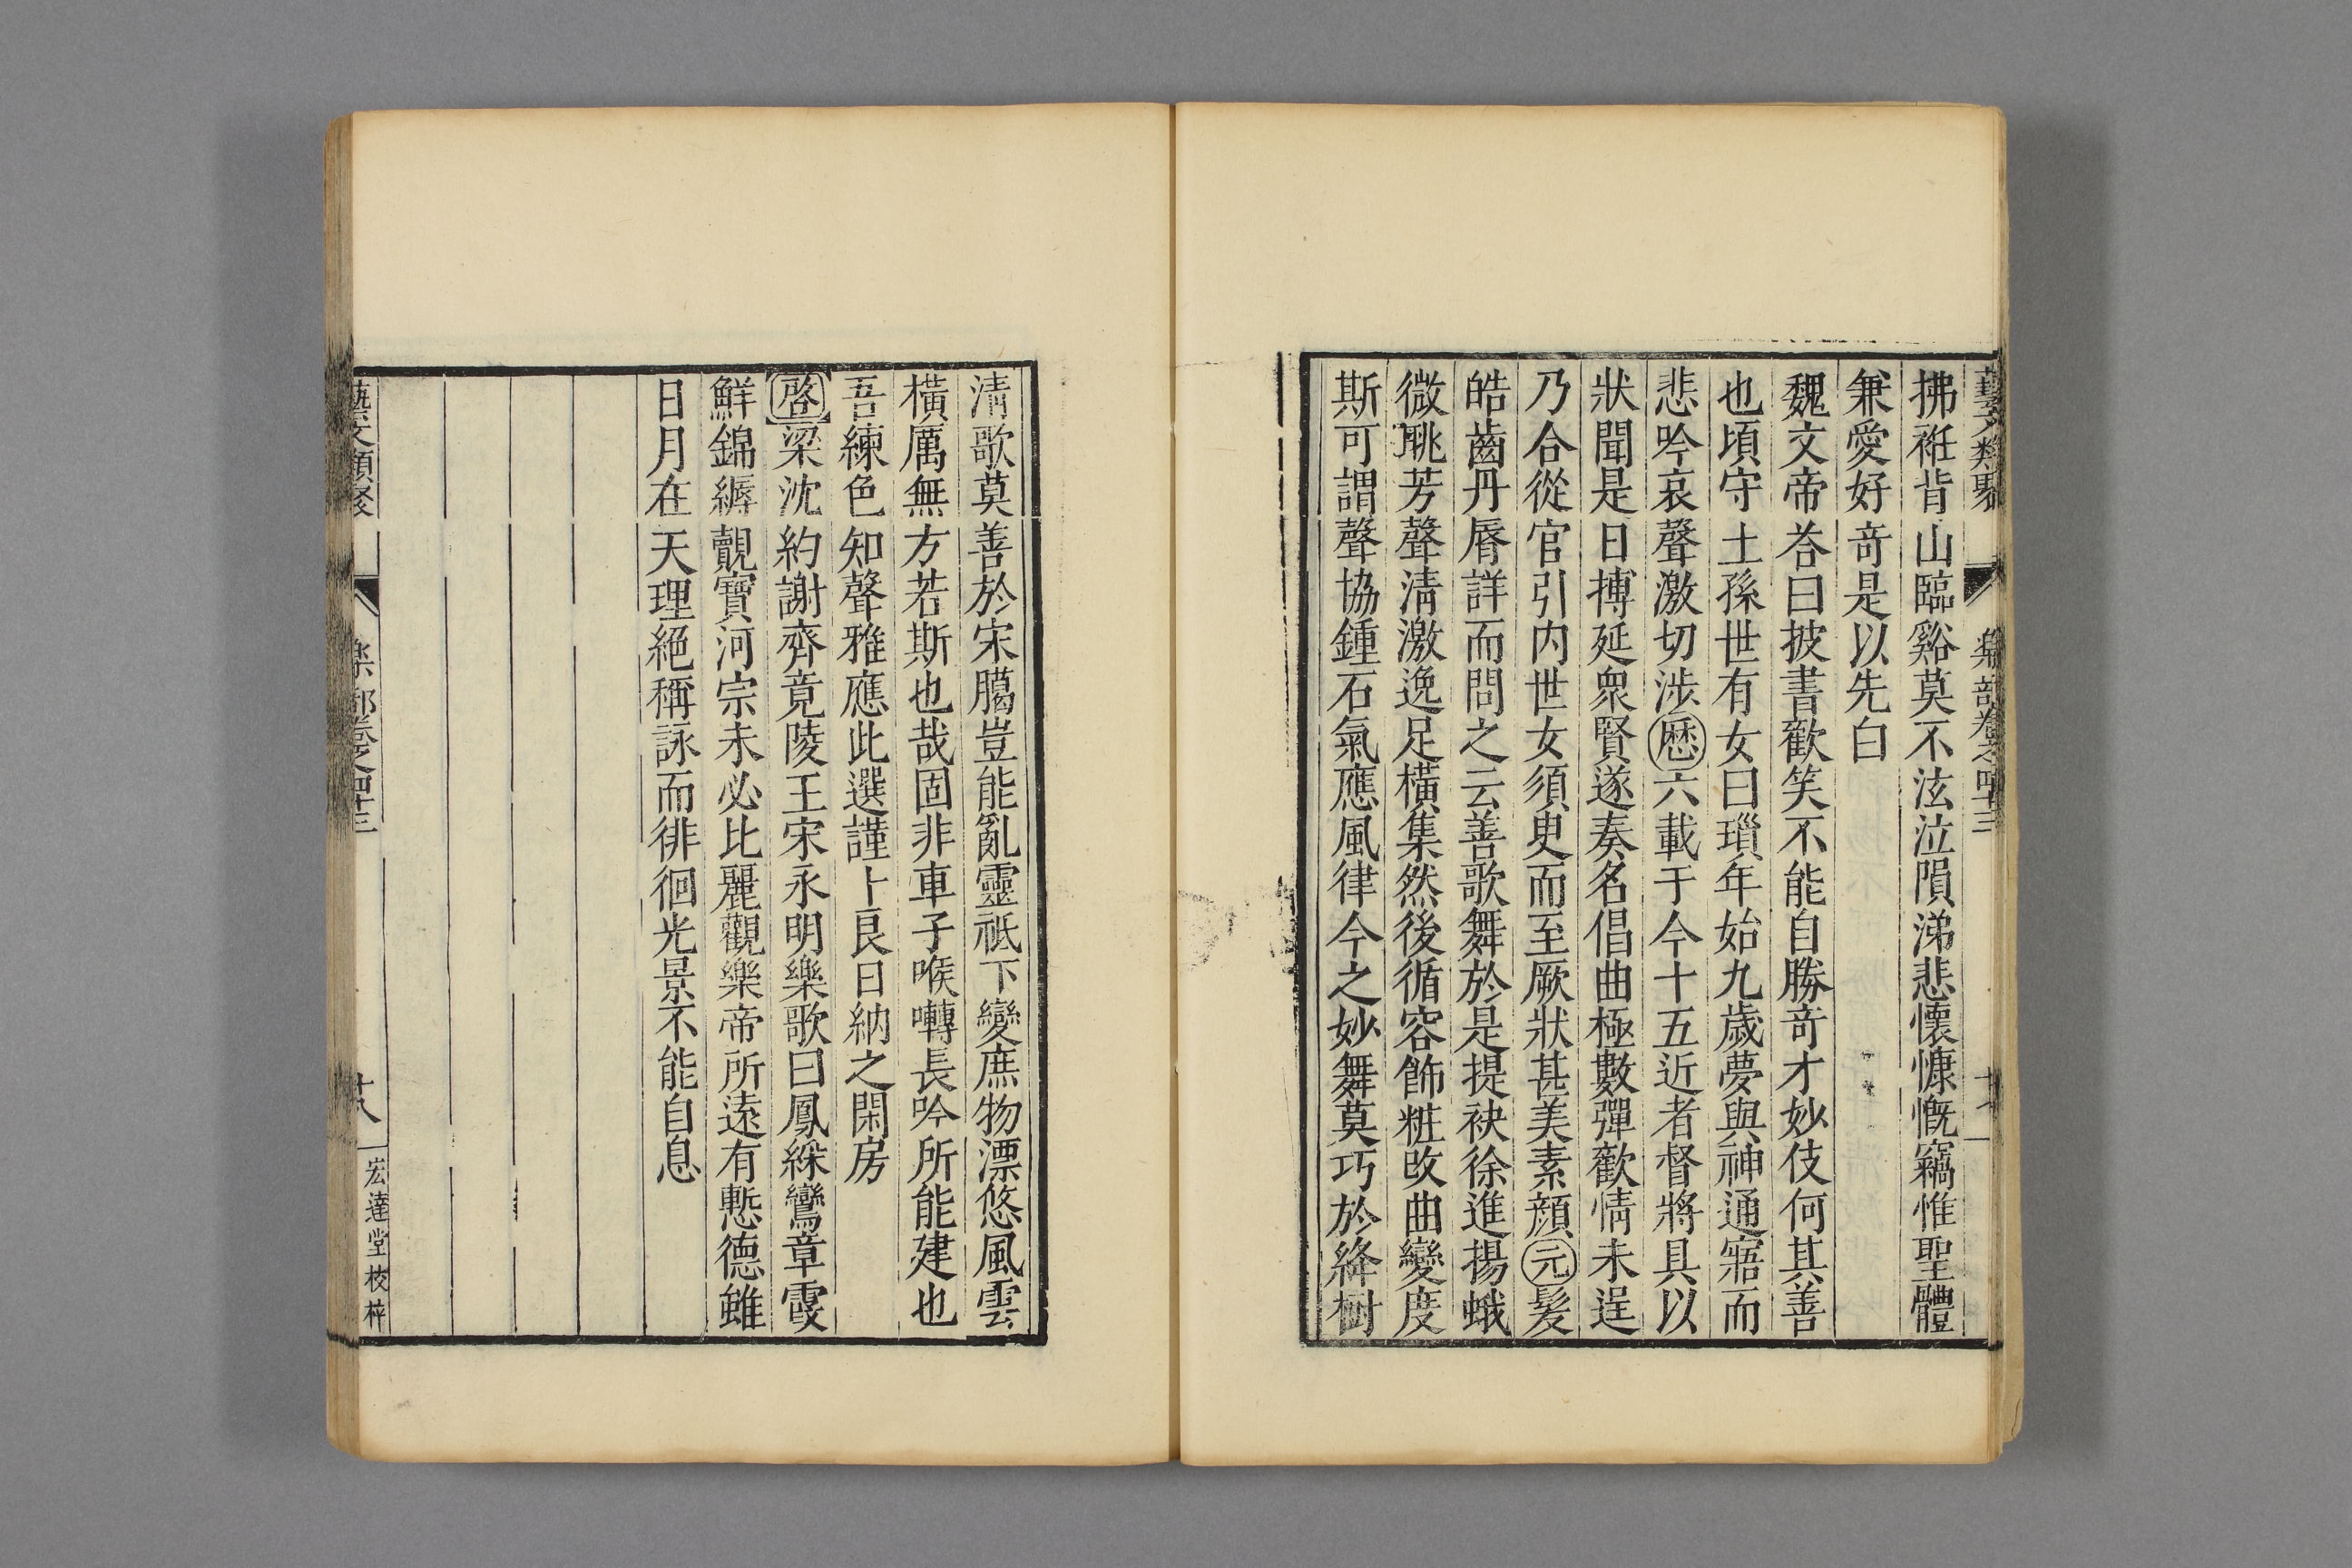 藝文類聚 樂部卷之四十三
拂袵背山臨谿莫不泫泣隕涕悲懷慷慨竊惟聖體
兼愛好奇是以先白
魏文帝荅曰披書歡笑不能自勝奇才妙伎何其善
也頃守土孫世有女曰瑣年始九歲夢與神通寤而
悲吟哀聲激切涉㦄六載于今十五近者督將具以
狀聞是日摶延衆賢遂奏名倡曲極數彈歡情未逞
乃合從官引内世女須臾而至厥狀甚美素顏元髪
皓齒丹脣詳而問之云善歌舞於是提袂徐進揚蛾
微眺芳聲清激逸足橫集然後循容飾粧改曲變度
斯可謂聲協鍾石氣應風律今之妙舞莫巧於絳樹
清歌莫善於宋臈豈能亂靈祇下變庶物漂悠風雲
橫厲無方若斯也哉固非車子喉囀長吟所能建也
吾練色知聲雅應此選謹卜良日納之閑房
啓梁沈約謝齊竟陵王宋永明樂歌曰鳳綵鸞章霞
鮮錦縟覿寶河宗未必比麗觀樂帝所遠有慙德雖
日月在天理絕稱詠而徘徊光景不能自息
藝文類聚 樂部卷之四十三 十八 宏達堂校梓